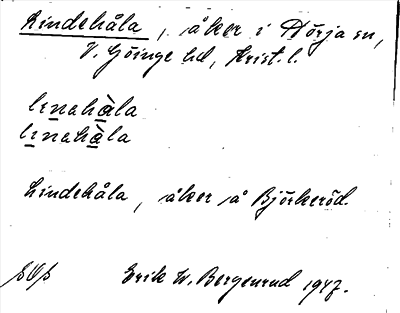 Lindehåla, åker i Nörja sn,
V. Göinge hd, Krist. l.
linahàla
linahàla
Lindehåla, åker å Björkeröd.
Erik W. Bergenrud 1947.